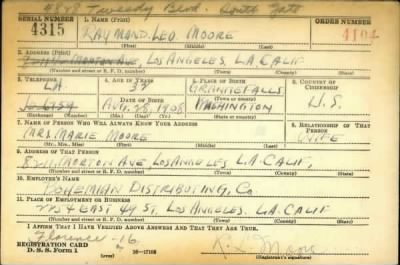 4828 Tweedy Blvd. South Gate
SERIAL NUMBER 1. NAME (Print) ORDER NUMBER
4315 RAYMOND LEO MOORE
(First) (Middle) (Last)
2. ADDRESS (Print)
MORTON AVE, LOS ANGELES, L.A. CALIF
(Number and street or R. F. D. number) (Town) (County) (State)
3. TELEPHONE 4. AGE IN YEARS 5. PLACE OF BIRTH 6. COUNTRY OF CITIZENSHIP
L.A. 32 GRANITE FALLS
DATE OF BIRTH (Town or county)
AUG. 28, 1908 WASHINGTON U.S.
(Exchange) (Number) (Mo.) (Day) (Yr.) (State or country)
7. NAME OF PERSON WHO WILL ALWAYS KNOW YOUR ADDRESS 8. RELATIONSHIP OF THAT PERSON
MRS. MARIE MOORE WIFE
(Mr., Mrs., Miss) (First) (Middle) (Last)
9. ADDRESS OF THAT PERSON
MORTON AVE LOS ANGELES L.A. CALIF,
(Number and street or R. F. D. number) (Town) (County) (State)
10. EMPLOYER'S NAME
BOHEMIAN DISTRIBUTING, Co.
11. PLACE OF EMPLOYMENT OR BUSINESS
EAST 49 ST. LOS ANGELES. L.A. CALIF
(Number and street or R. F. D. number) (Town) (County) (State)
I AFFIRM THAT I HAVE VERIFIED ABOVE ANSWERS AND THAT THEY ARE TRUE.
Florence-16.
REGISTRATION CARD
D. S. S. Form 1 (over) 16-17105 (Registrant's signature)